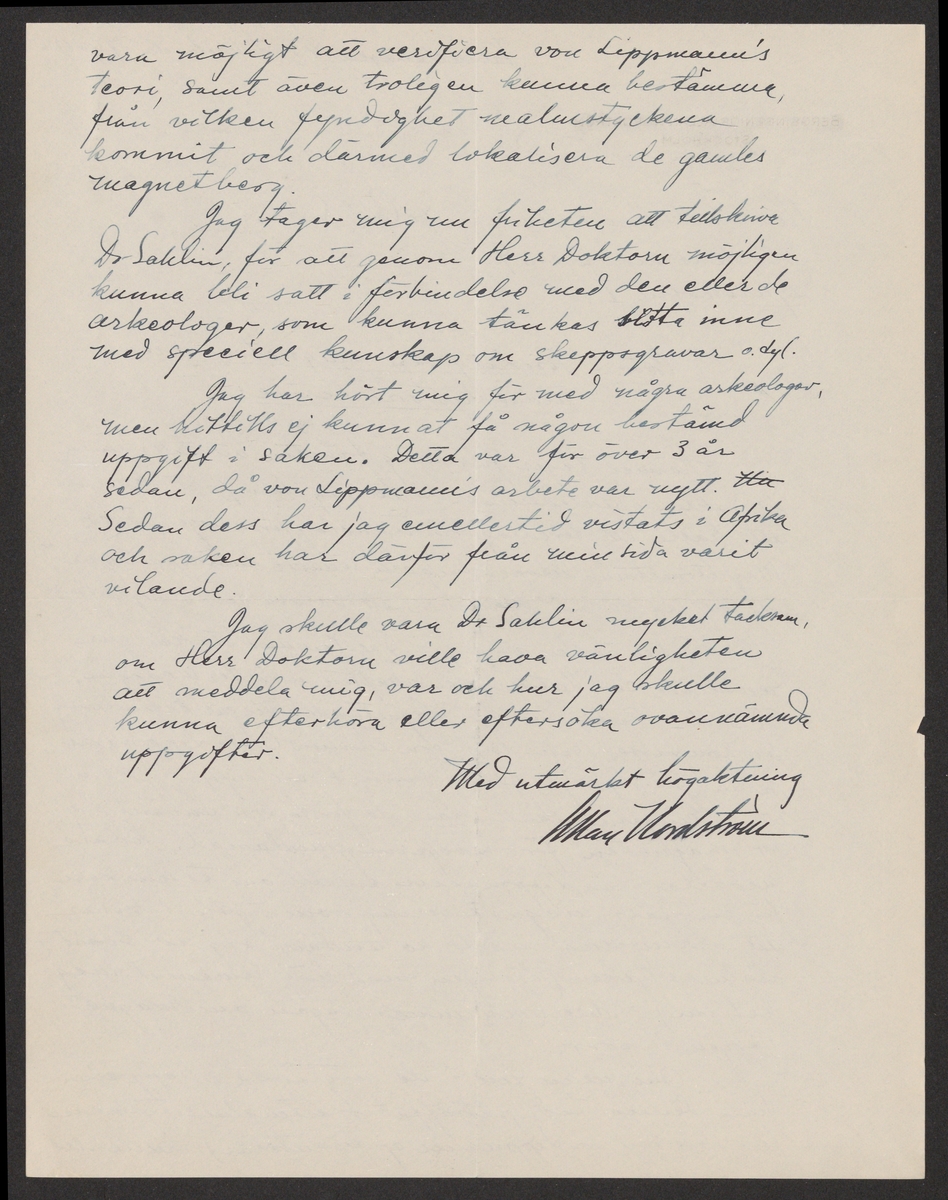 vara möjligt att verifiera von Lippmann's
teori, samt även troligen kunna bestämma,
från vilken fyndighet malmstyckena
kommit och därmed lokalisera de gamles
magnetberg.
Jag tager mig nu friheten att tillskriva
Dr Sahlin, för att genom Herr Doktorn möjligen
kunna bli satt i förbindelse med den eller de
arkeologer, som kunna tänkas sitta inne
med speciell kunskap om skeppsgravar o. dyl.
Jag har hört mig för med några arkeologer,
men hittills ej kunnat få någon bestämd
uppgift i saken. Detta var för över 3 år
sedan, då von Lippmann's arbete var nytt.
Sedan dess har jag emellertid vistats i Afrika
och saken har därför från min sida varit
vilande.
Jag skulle vara Dr Sahlin mycket tacksam,
om Herr Doktorn ville hava vänligheten
att meddela mig, var och hur jag skulle
kunna efterhöra eller eftersöka ovannämnda
uppgifter.
Med utmärkt högaktning
Allan Nordström